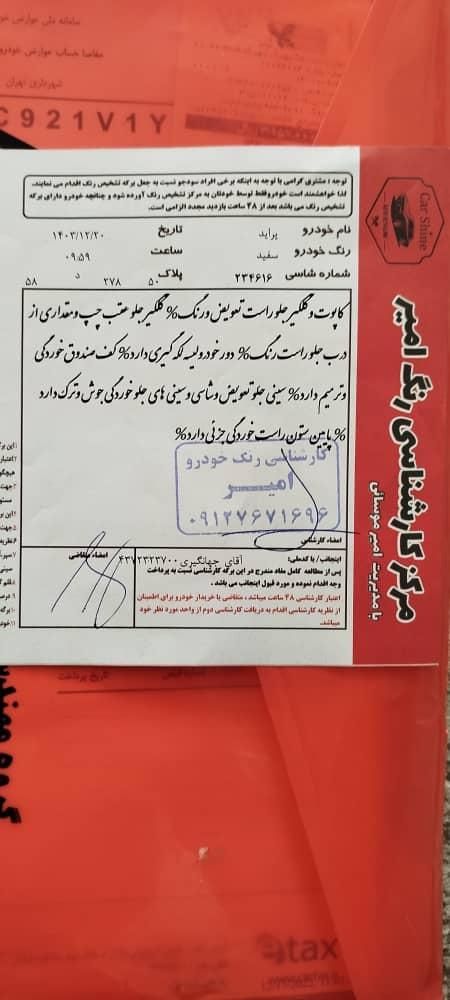 سامانه ملی عوارض خودرو
مفاصا حساب عوارض خودرو
شهرداری تهران
C921V1Y
Car Shine
مرکز کارشناسی رنگ امیر
با مدیریت امیر موسائی
توجه : مشتری گرامی با توجه به اینکه برخی افراد سودجو نسبت به جعل برگه تشخیص رنگ اقدام می نمایند.
لذا خواهشمند است خودرو فقط توسط خودتان به مرکز تشخیص رنگ آورده شود و چنانچه خودرو دارای برگه
تشخیص رنگ می باشد بعد از ۴۸ ساعت بازدید مجدد الزامی است.
نام خودرو پراید تاریخ ۱۴۰۳/۱۲/۲۰
رنگ خودرو سفید ساعت ۰۹:۵۹
شماره شاسی ۲۳۴۶۱۶ پلاک ۵۰ ۲۷۸ د ۵۸
کاپوت و گلگیر جلو راست تعویض و رنگ% گلگیر جلو عقب چپ و مقداری از
درب جلو راست رنگ% دور خودرو لیسه لکه گیری دارد% کف صندوق خوردگی
و ترمیم دارد% سینی جلو تعویض و شاسی و سینی های جلو خوردگی جوش و ترک دارد
% پایین ستون راست خوردگی جزئی دارد%
کارشناسی رنگ خودرو
امیر
۰۹۱۲۷۶۷۱۶۹۶
امضاء کارشناس
اینجانب / با کدملی: آقای جهانگیری ۴۳۷۲۳۲۳۷۰۰
امضاء متقاضی
پس از مطالعه کامل مفاد مندرج در این برگه کارشناسی نسبت به پرداخت
وجه اقدام نموده و مورد قبول اینجانب می باشد .
اعتبار کارشناسی ۴۸ ساعت میباشد ، متقاضی یا خریدار خودرو برای اطمینان
از نظریه کارشناسی اقدام به دریافت کارشناسی دوم از واحد مورد نظر خود
میباشد.
تاریخ پرداخت
گروه مهندس
tax